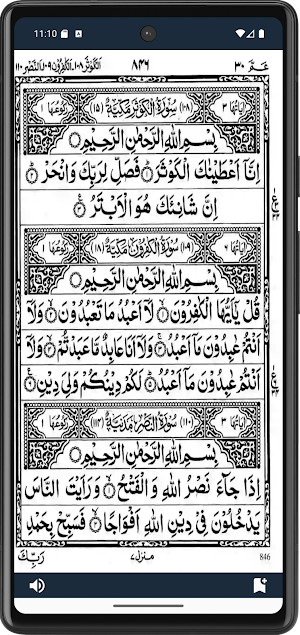 11:10
الكوثر ١٠٨، الكفرون ١٠٩، النصر ١١٠
٨٤٦
عمّ ٣٠
اٰيَاتُهَا ٣ (١٠٨) سُوْرَةُ الْكَوْثَرِ مَكِّيَّةٌ (١٥) رُكُوْعُهَا ١
بِسْمِ اللّٰهِ الرَّحْمٰنِ الرَّحِيْمِ
اِنَّاۤ اَعْطَيْنٰكَ الْكَوْثَرَ ۝١ فَصَلِّ لِرَبِّكَ وَانْحَرْ ۝٢
اِنَّ شَانِئَكَ هُوَ الْاَبْتَرُ ۝٣
اٰيَاتُهَا ٦ (١٠٩) سُوْرَةُ الْكٰفِرُوْنَ مَكِّيَّةٌ (١٨) رُكُوْعُهَا ١
بِسْمِ اللّٰهِ الرَّحْمٰنِ الرَّحِيْمِ
قُلْ يٰۤاَيُّهَا الْكٰفِرُوْنَ ۝١ لَاۤ اَعْبُدُ مَا تَعْبُدُوْنَ ۝٢ وَلَاۤ
اَنْتُمْ عٰبِدُوْنَ مَاۤ اَعْبُدُ ۝٣ وَلَاۤ اَنَا عَابِدٌ مَّا عَبَدْتُّمْ ۝٤ وَلَاۤ
اَنْتُمْ عٰبِدُوْنَ مَاۤ اَعْبُدُ ۝٥ لَكُمْ دِيْنُكُمْ وَلِيَ دِيْنِ ۝٦
اٰيَاتُهَا ٣ (١١٠) سُوْرَةُ النَّصْرِ مَدَنِيَّةٌ (١١٤) رُكُوْعُهَا ١
بِسْمِ اللّٰهِ الرَّحْمٰنِ الرَّحِيْمِ
اِذَا جَآءَ نَصْرُ اللّٰهِ وَالْفَتْحُ ۝١ وَرَاَيْتَ النَّاسَ
يَدْخُلُوْنَ فِيْ دِيْنِ اللّٰهِ اَفْوَاجًا ۝٢ فَسَبِّحْ بِحَمْدِ
رَبِّكَ
منزل ٧
846